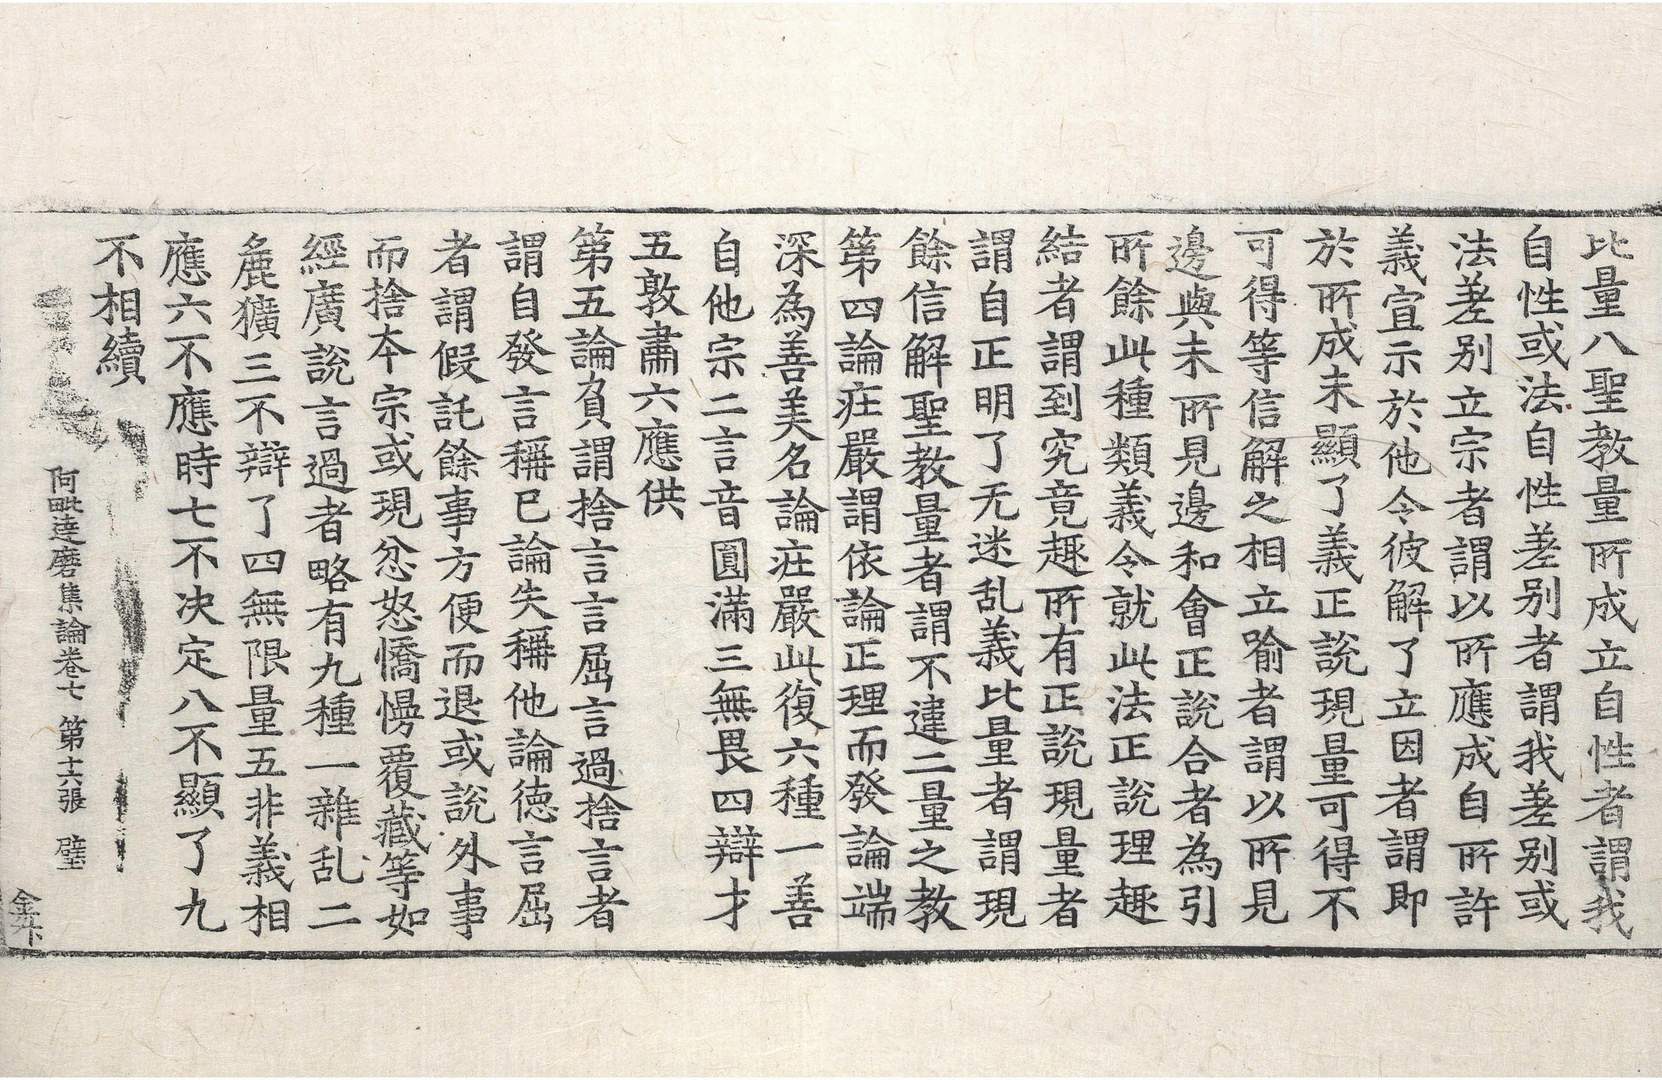 比量八聖教量所成立自性者謂我
自性或法自性差别者謂我差别或
法差别立宗者謂以所應成自所許
義宣示於他令彼解了立因者謂即
於所成未顯了義正說現量可得不
可得等信解之相立喻者謂以所見
邊與未所見邊和會正說合者為引
所餘此種類義令就此法正說理趣
結者謂到究竟趣所有正說現量者
謂自正明了无迷乱義比量者謂現
餘信解聖教量者謂不違二量之教
第四論庄嚴謂依論正理而發論端
深為善美名論庄嚴此復六種一善
自他宗二言音圓滿三無畏四辯才
五敦肅六應供
第五論負謂捨言言屈言過捨言者
謂自發言稱已論失稱他論德言屈
者謂假託餘事方便而退或說外事
而捨本宗或現忿怒憍慢覆藏等如
經廣說言過者略有九種一雜乱二
麁獷三不辯了四無限量五非義相
應六不應時七不決定八不顯了九
不相續
阿毗達磨集論卷七 第十六張 璧